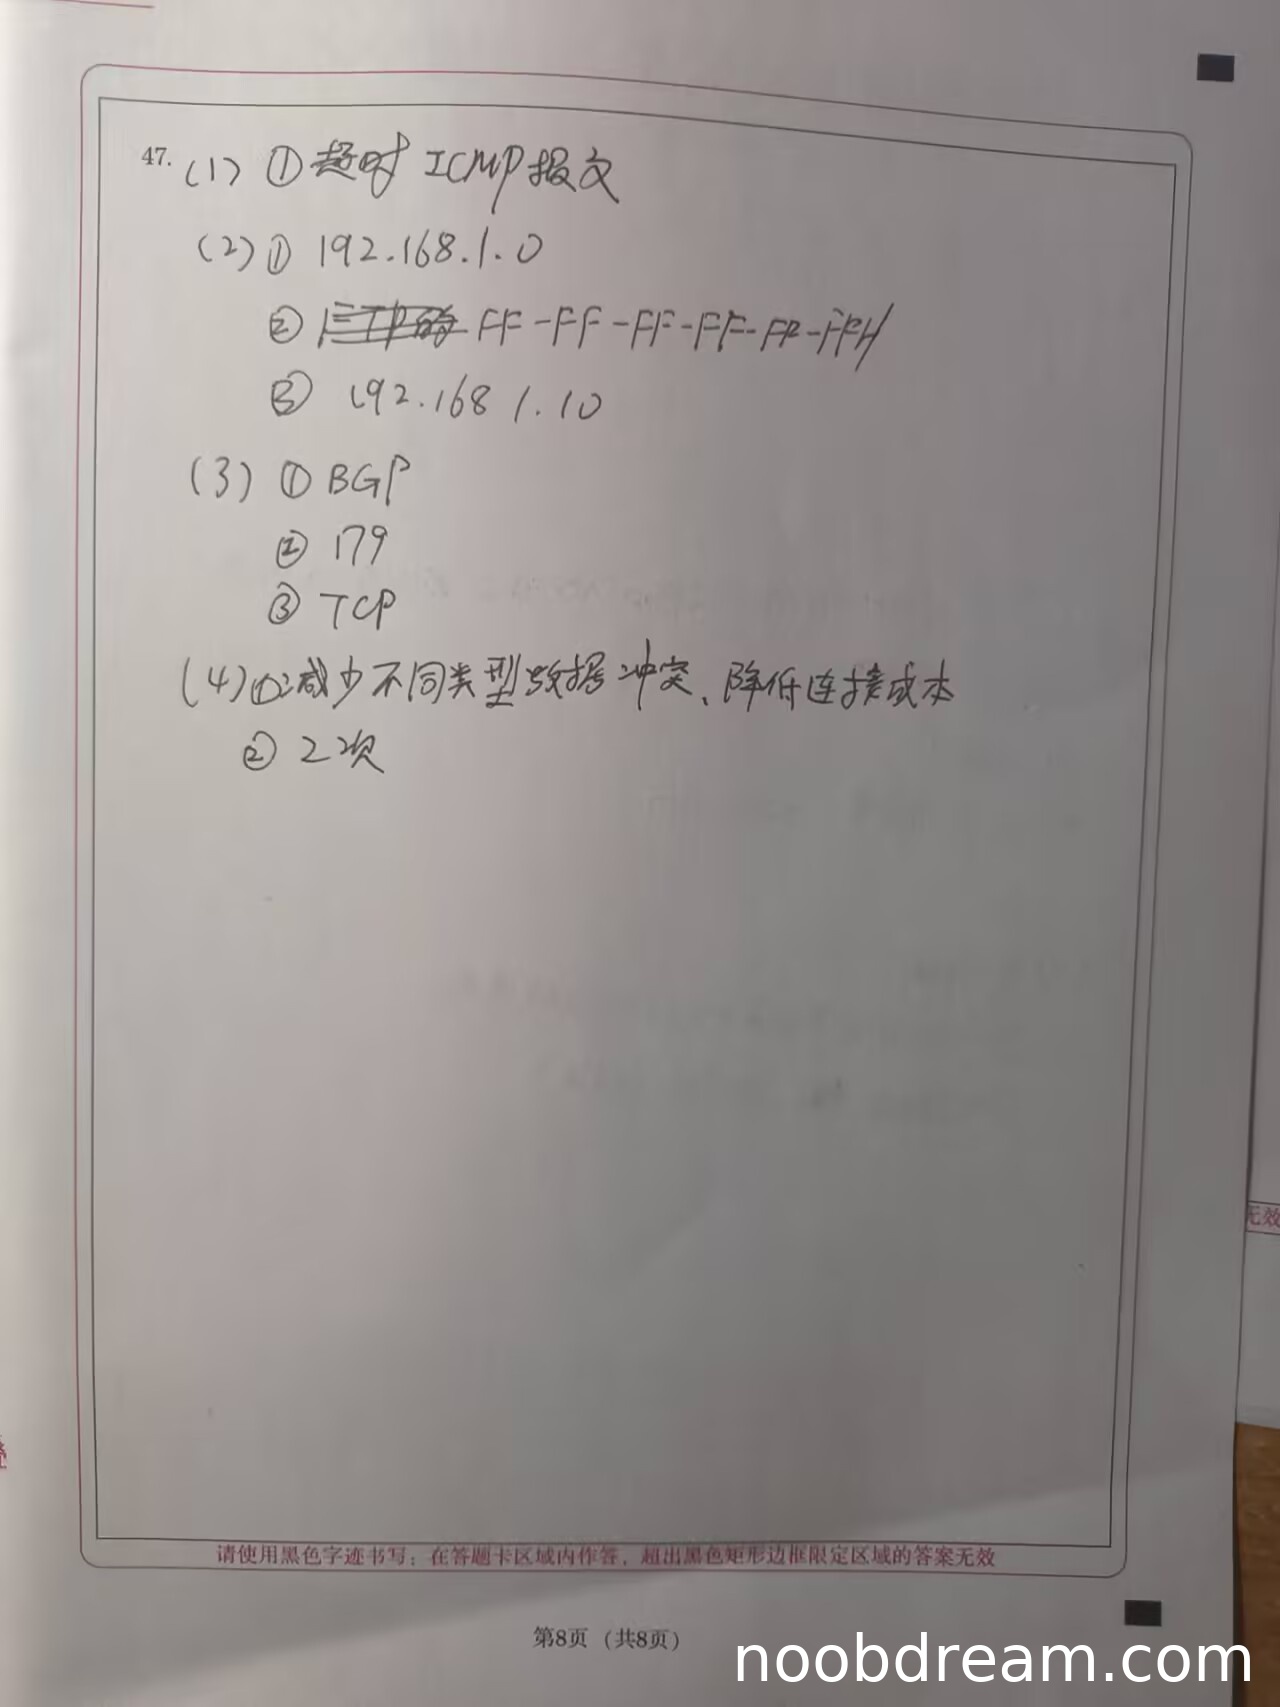 47. (1) ① 超时 ICMP报文
(2) ① 192.168.1.0
② FF-FF-FF-FF-FF-FFH
③ 192.168 1.10
(3) ① BGP
② 179
③ TCP
(4) ① 减少不同类型数据冲突、降低连接成本
② 2次
无效
请使用黑色字迹书写；在答题卡区域内作答，超出黑色矩形边框限定区域的答案无效
第8页（共8页）
noobdream.com